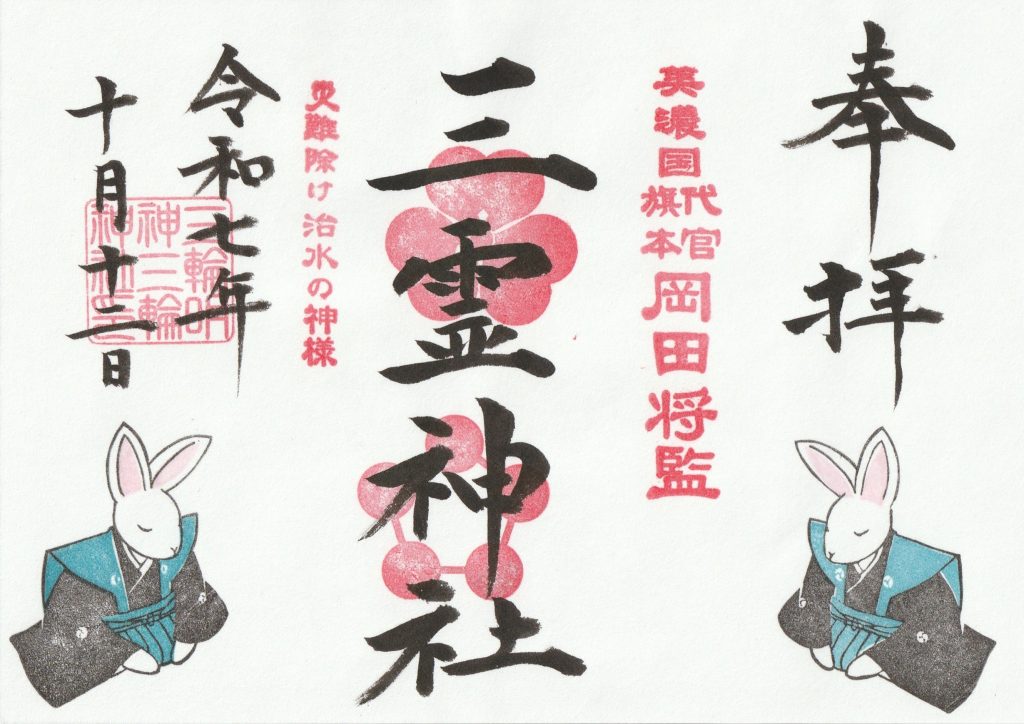 奉拝
美濃国
代官
旗本
岡田将監
三霊神社
災難除け治水の神様
令和七年
十月十二日
三輪明
神三輪
神社印